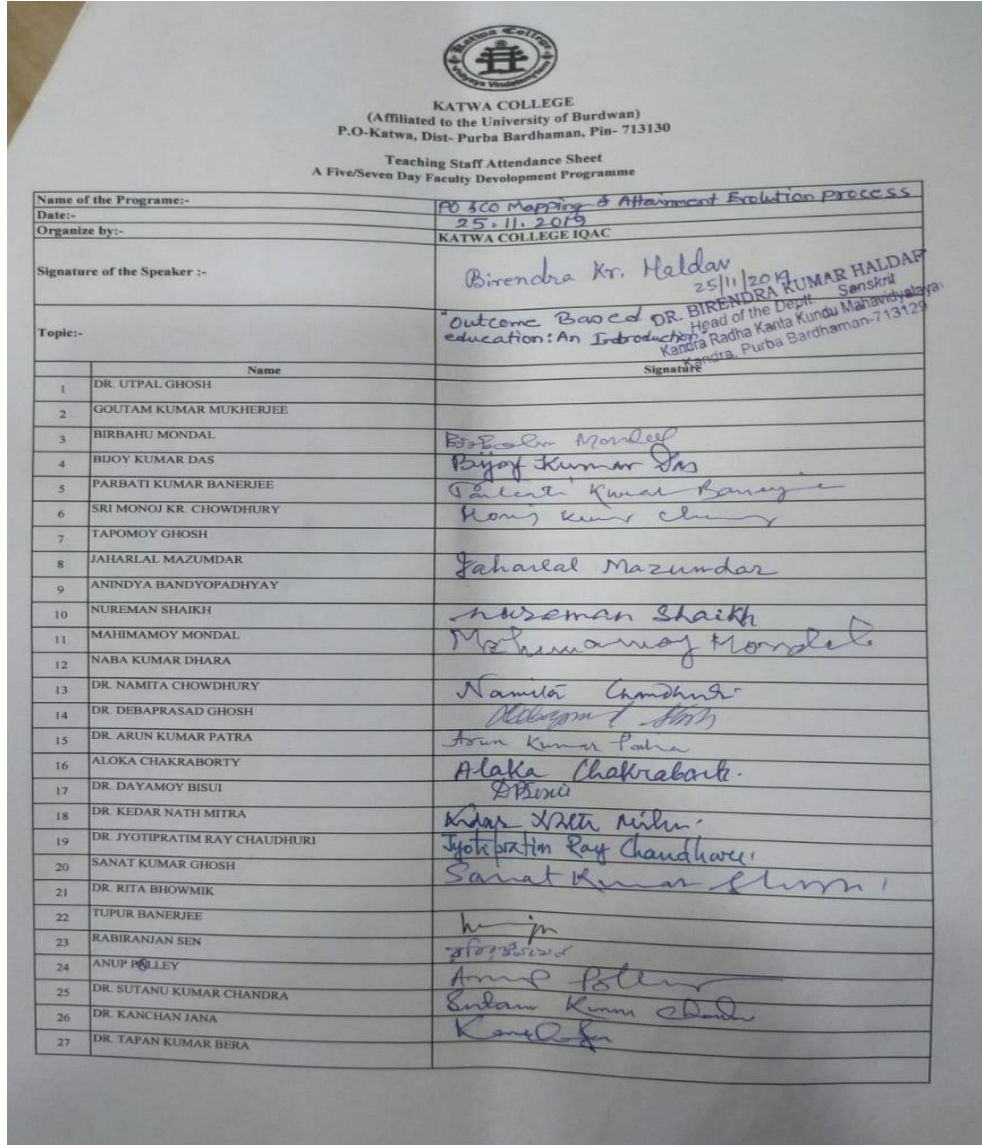 Katwa College
Vidyaya Vindateamritam
KATWA COLLEGE
(Affiliated to the University of Burdwan)
P.O-Katwa, Dist- Purba Bardhaman, Pin- 713130
Teaching Staff Attendance Sheet
A Five/Seven Day Faculty Devolopment Programme
Name of the Programe:- PO & CO Mapping & Attainment Evolution process
Date:- 25.11.2019
Organize by:- KATWA COLLEGE IQAC
Signature of the Speaker :- Birendra Kr. Haldar
25/11/2019
DR. BIRENDRA KUMAR HALDAR
Head of the Deptt. Sanskrit
Kandra Radha Kanta Kundu Mahavidyalaya
Kandra, Purba Bardhaman-713129
Topic:- "Outcome Based
education: An Introduction"
Name Signature
1 DR. UTPAL GHOSH
2 GOUTAM KUMAR MUKHERJEE
3 BIRBAHU MONDAL Mondal
4 BIJOY KUMAR DAS Bijoy Kumar Das
5 PARBATI KUMAR BANERJEE Parbati Kumar Banerjee
6 SRI MONOJ KR. CHOWDHURY
7 TAPOMOY GHOSH
8 JAHARLAL MAZUMDAR Jaharlal Mazumdar
9 ANINDYA BANDYOPADHYAY
10 NUREMAN SHAIKH Nureman Shaikh
11 MAHIMAMOY MONDAL Mahimamoy Mondal
12 NABA KUMAR DHARA
13 DR. NAMITA CHOWDHURY Namita Chowdhury
14 DR. DEBAPRASAD GHOSH
15 DR. ARUN KUMAR PATRA Arun Kumar Patra
16 ALOKA CHAKRABORTY Alaka Chakraborti.
17 DR. DAYAMOY BISUI DBisui
18 DR. KEDAR NATH MITRA Kedar Nath Mitra
19 DR. JYOTIPRATIM RAY CHAUDHURI Jyotipratim Ray Chaudhuri
20 SANAT KUMAR GHOSH Sanat Kumar Ghosh
21 DR. RITA BHOWMIK
22 TUPUR BANERJEE
23 RABIRANJAN SEN
24 ANUP POLLEY Anup Polley
25 DR. SUTANU KUMAR CHANDRA Sutanu Kumar Chandra
26 DR. KANCHAN JANA
27 DR. TAPAN KUMAR BERA